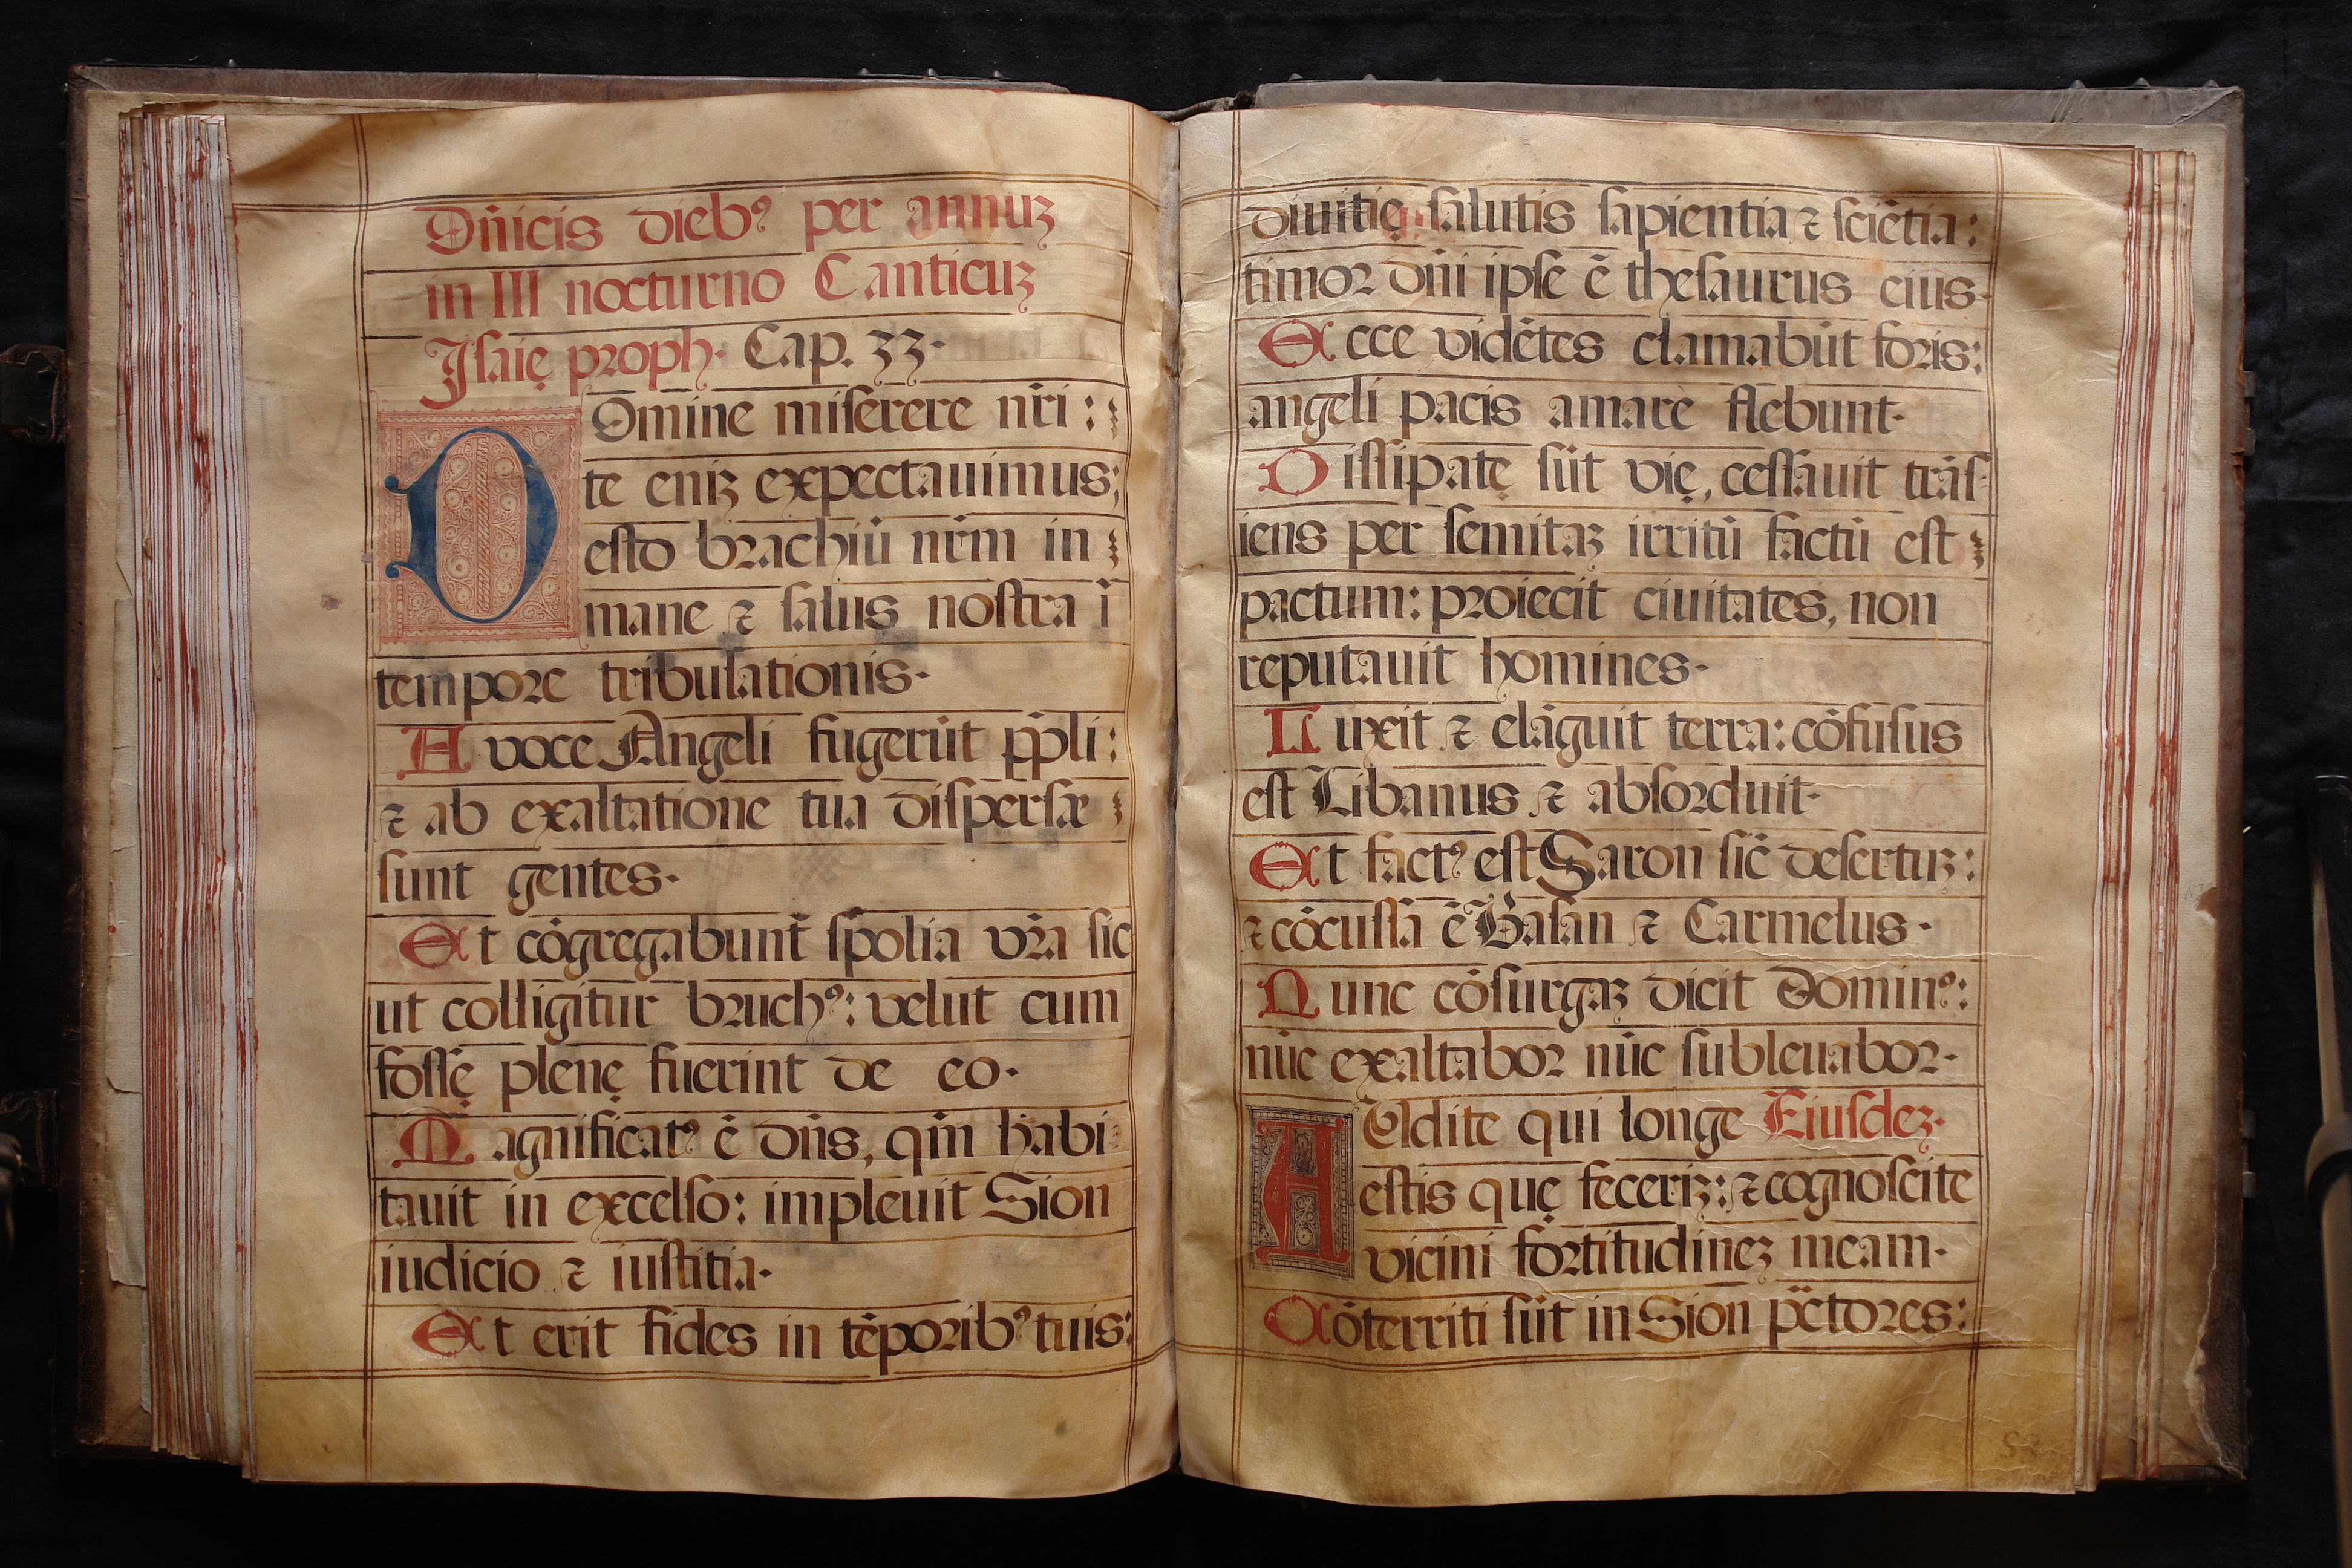 Dn̄icis dieb⁹ per annuʒ
in III nocturno Canticuʒ
Jſaię proph· Cap. 33·
DOmine miſerere nr̄i :
te eniʒ expectauimus;
eſto brachiū nr̄m in
mane ⁊ ſalus noſtra ī
tempore tribulationis·
A voce Angeli fugerūt pp̄li :
⁊ ab exaltatione tua diſperſæ
ſunt gentes·
Et cōgregabunt̄ ſpolia vr̄a ſic
ut colligitur bruch⁹: velut cum
foſſę plenę fuerint de eo·
Magnificat⁹ ē dn̄s, qm̄ habi
tauit in excelſo: impleuit Sion
iudicio ⁊ iuſtitia·
Et erit fides in tēporib⁹ tuis:
diuitię ſalutis ſapientia ⁊ ſciētia:
timor dn̄i ipſe ē theſaurus eius·
Ecce vidētes clamabūt foris:
angeli pacis amarè flebunt·
Diſſipatę ſūt vię, ceſſauit trāſ-
iens per ſemitaʒ irritū factū eſt
pactum: proiecit ciuitates, non
reputauit homines·
Luxit ⁊ elāguit terra: cōfuſus
eſt Libanus ⁊ abſorduit·
Et fact⁹ eſt Saron ſic̄ deſertuʒ:
⁊ cōcuſſa ē Baſan ⁊ Carmelus·
Nunc cōſurgaʒ dicit Domin⁹:
nūc exaltabor nūc ſubleuabor·
AUdite qui longe Eiuſdeʒ·
eſtis quę feceriʒ: ⁊ cognoſcite
vicini fortitudineʒ meam·
Cōterriti ſūt in Sion pc̄tores: